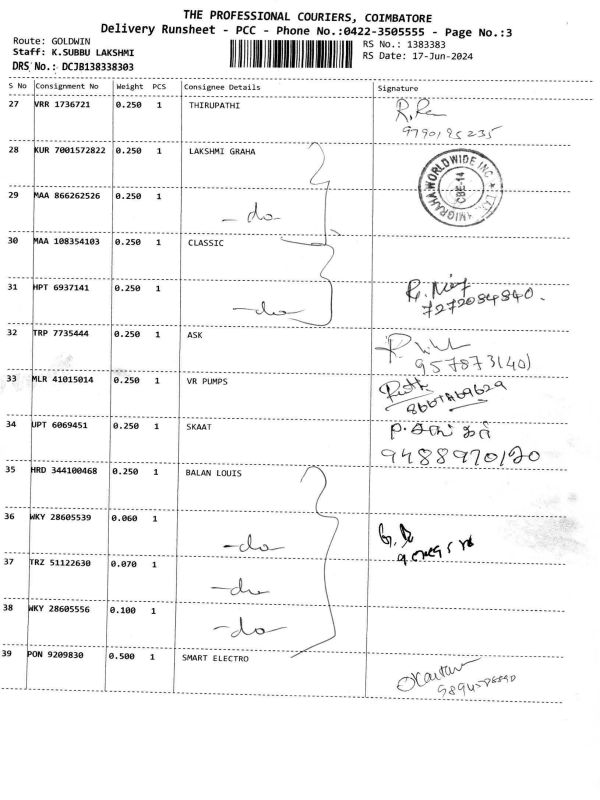 THE PROFESSIONAL COURIERS, COIMBATORE
Delivery Runsheet - PCC - Phone No.:0422-3505555 - Page No.:3
Route: GOLDWIN
RS No.: 1383383
Staff: K.SUBBU LAKSHMI
RS Date: 17-Jun-2024
DRS No.: DCJB138338303
S No Consignment No Weight PCS Consignee Details Signature
27 VRR 1736721 0.250 1 THIRUPATHI
28 KUR 7001572822 0.250 1 LAKSHMI GRAHA
29 MAA 866262526 0.250 1
-do-
30 MAA 108354103 0.250 1 CLASSIC
31 HPT 6937141 0.250 1
-do-
7272084840.
32 TRP 7735444 0.250 1 ASK
33 MLR 41015014 0.250 1 VR PUMPS
34 UPT 6069451 0.250 1 SKAAT
9488970120
35 HRD 344100468 0.250 1 BALAN LOUIS
36 WKY 28605539 0.060 1
-do-
37 TRZ 51122630 0.070 1
-do-
38 WKY 28605556 0.100 1
-do-
39 PON 9209830 0.500 1 SMART ELECTRO